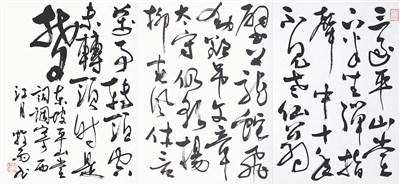 三過平山堂
下半生彈指
聲中十年
不見老仙翁
壁上龍蛇飛
動欲吊文章
太守仍歌楊
柳春風休言
萬事轉頭空
未轉頭時是
夢
東坡平山堂
詞調寄西
江月